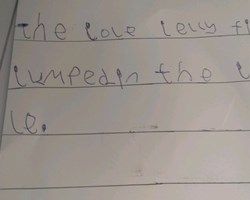 the love lelly fi
lumpedin the l
le.